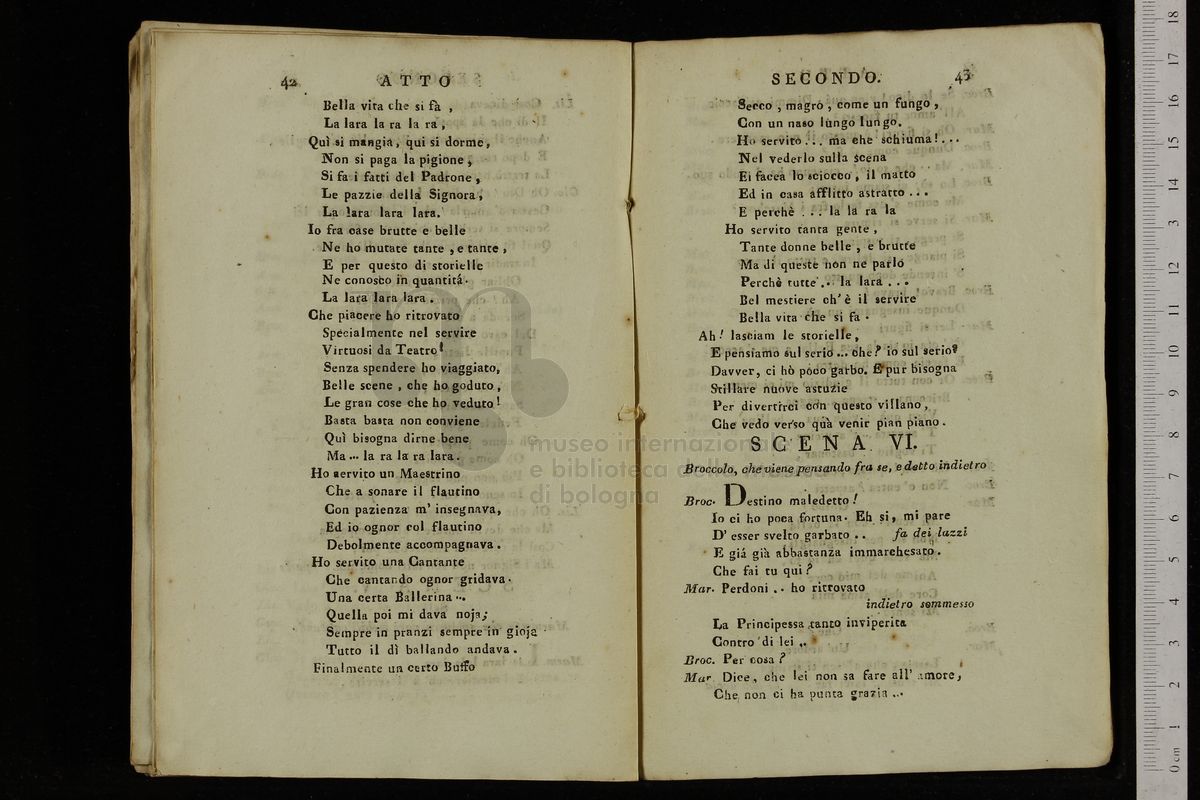 42 ATTO
Bella vita che si fà ,
La lara la ra la ra ,
Quì si mangia, qui si dorme,
Non si paga la pigione ,
Si fa i fatti del Padrone ,
Le pazzie della Signora ,
La lara lara lara.
Io fra case brutte e belle
Ne ho mutate tante , e tante ,
E per questo di storielle
Ne conosco in quantitá .
La lara lara lara .
Che piacere ho ritrovato
Specialmente nel servire
Virtuosi da Teatro!
Senza spendere ho viaggiato,
Belle scene , che ho goduto ,
Le gran cose che ho veduto !
Basta basta non conviene
Quì bisogna dirne bene
Ma ... la ra la ra lara .
Ho servito un Maestrino
Che a sonare il flautino
Con pazienza m' insegnava,
Ed io ognor col flautino
Debolmente accompagnava .
Ho servito una Cantante
Che cantando ognor gridava .
Una certa Ballerina ..
Quella poi mi dava noja;
Sempre in pranzi sempre in gioja
Tutto il dì ballando andava .
Finalmente un certo Buffo
SECONDO. 43
Secco , magro , come un fungo ,
Con un naso lungo lungo.
Ho servito ... ma che schiuma! ...
Nel vederlo sulla scena
Ei facea lo sciocco , il matto
Ed in casa afflitto astratto ...
E perchè ... la la ra la
Ho servito tanta gente ,
Tante donne belle , e brutte
Ma di queste non ne parlo
Perchè tutte .. la lara ...
Bel mestiere ch' è il servire
Bella vita che si fa .
Ah! lasciam le storielle ,
E pensiamo sul serio ... che? io sul serio?
Davver, ci hò poco garbo. E pur bisogna
Stillare nuove astuzie
Per divertirci con questo villano ,
Che vedo verso quà venir pian piano .
SCENA VI.
Broccolo, che viene pensando fra se, e detto indietro
Broc. Destino maledetto !
Io ci ho poca fortuna . Eh si, mi pare
D' esser svelto garbato .. fa dei lazzi
E giá già abbastanza immarchesato .
Che fai tu qui ?
Mar. Perdoni .. ho ritrovato
indietro sommesso
La Principessa tanto inviperita
Contro di lei ..
Broc. Per cosa ?
Mar Dice , che lei non sa fare all' amore ,
Che non ci ha punta grazia ...
museo internazionale
e biblioteca della musica
di bologna